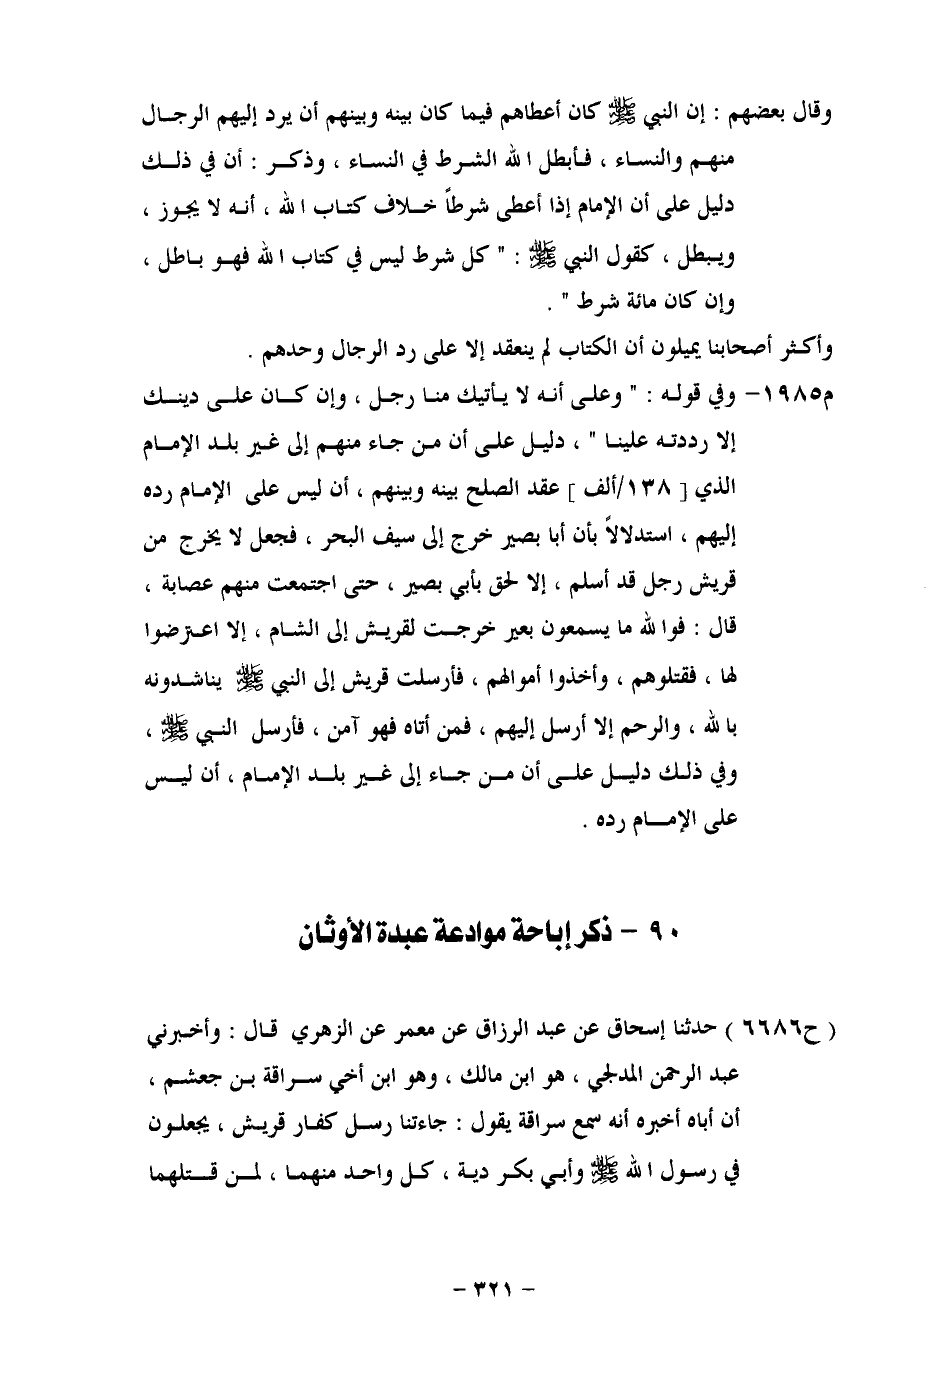 وقال بعضهم : إن النبي ﷺ كان أعطاهم فيما كان بينه وبينهم أن يرد إليهم الرجال
منهم والنساء ، فأبطل الله الشرط في النساء ، وذكر : أن في ذلك
دليل على أن الإمام إذا أعطى شرطاً خلاف كتاب الله ، أنه لا يجوز ،
ويبطل ، كقول النبي ﷺ : " كل شرط ليس في كتاب الله فهو باطل ،
وإن كان مائة شرط " .
وأكثر أصحابنا يميلون أن الكتاب لم ينعقد إلا على رد الرجال وحدهم .
م١٩٨٥- وفي قوله : " وعلى أنه لا يأتيك منا رجل ، وإن كان على دينك
إلا رددته علينا " ، دليل على أن من جاء منهم إلى غير بلد الإمام
الذي [ ١٣٨/ألف ] عقد الصلح بينه وبينهم ، أن ليس على الإمام رده
إليهم ، استدلالاً بأن أبا بصير خرج إلى سيف البحر ، فجعل لا يخرج من
قريش رجل قد أسلم ، إلا لحق بأبي بصير ، حتى اجتمعت منهم عصابة ،
قال : فوالله ما يسمعون بعير خرجت لقريش إلى الشام ، إلا اعترضوا
لها ، فقتلوهم ، وأخذوا أموالهم ، فأرسلت قريش إلى النبي ﷺ يناشدونه
بالله ، والرحم إلا أرسل إليهم ، فمن أتاه فهو آمن ، فأرسل النبي ﷺ ،
وفي ذلك دليل على أن من جاء إلى غير بلد الإمام ، أن ليس
على الإمام رده .
٩٠ - ذكر إباحة موادعة عبدة الأوثان
( ح٦٦٨٦ ) حدثنا إسحاق عن عبد الرزاق عن معمر عن الزهري قال : وأخبرني
عبد الرحمن المدلجي ، هو ابن مالك ، وهو ابن أخي سراقة بن جعشم ،
أن أباه أخبره أنه سمع سراقة يقول : جاءتنا رسل كفار قريش ، يجعلون
في رسول الله ﷺ وأبي بكر دية ، كل واحد منهما ، لمن قتلهما
- ٣٢١ -